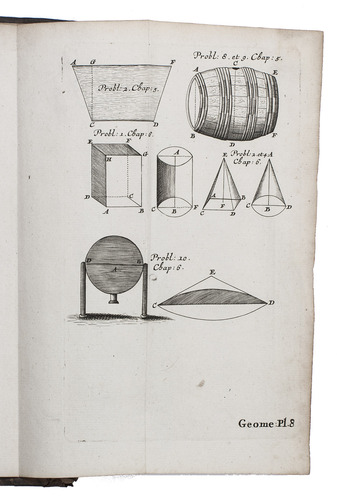 Probl: 8. et 9. Chap: 5.
A G F
Probl: 2. Chap: 5.
C D
C
A E
B F
D
Probl: 1. Chap: 6.
E F
H G
D C
A B
A
C B F
Probl: 2. et 4.
Chap: 6.
E A
A F
C D B
C B D
Probl: 10.
Chap: 6.
D B
A
E
C D
Geome: Pl. 8